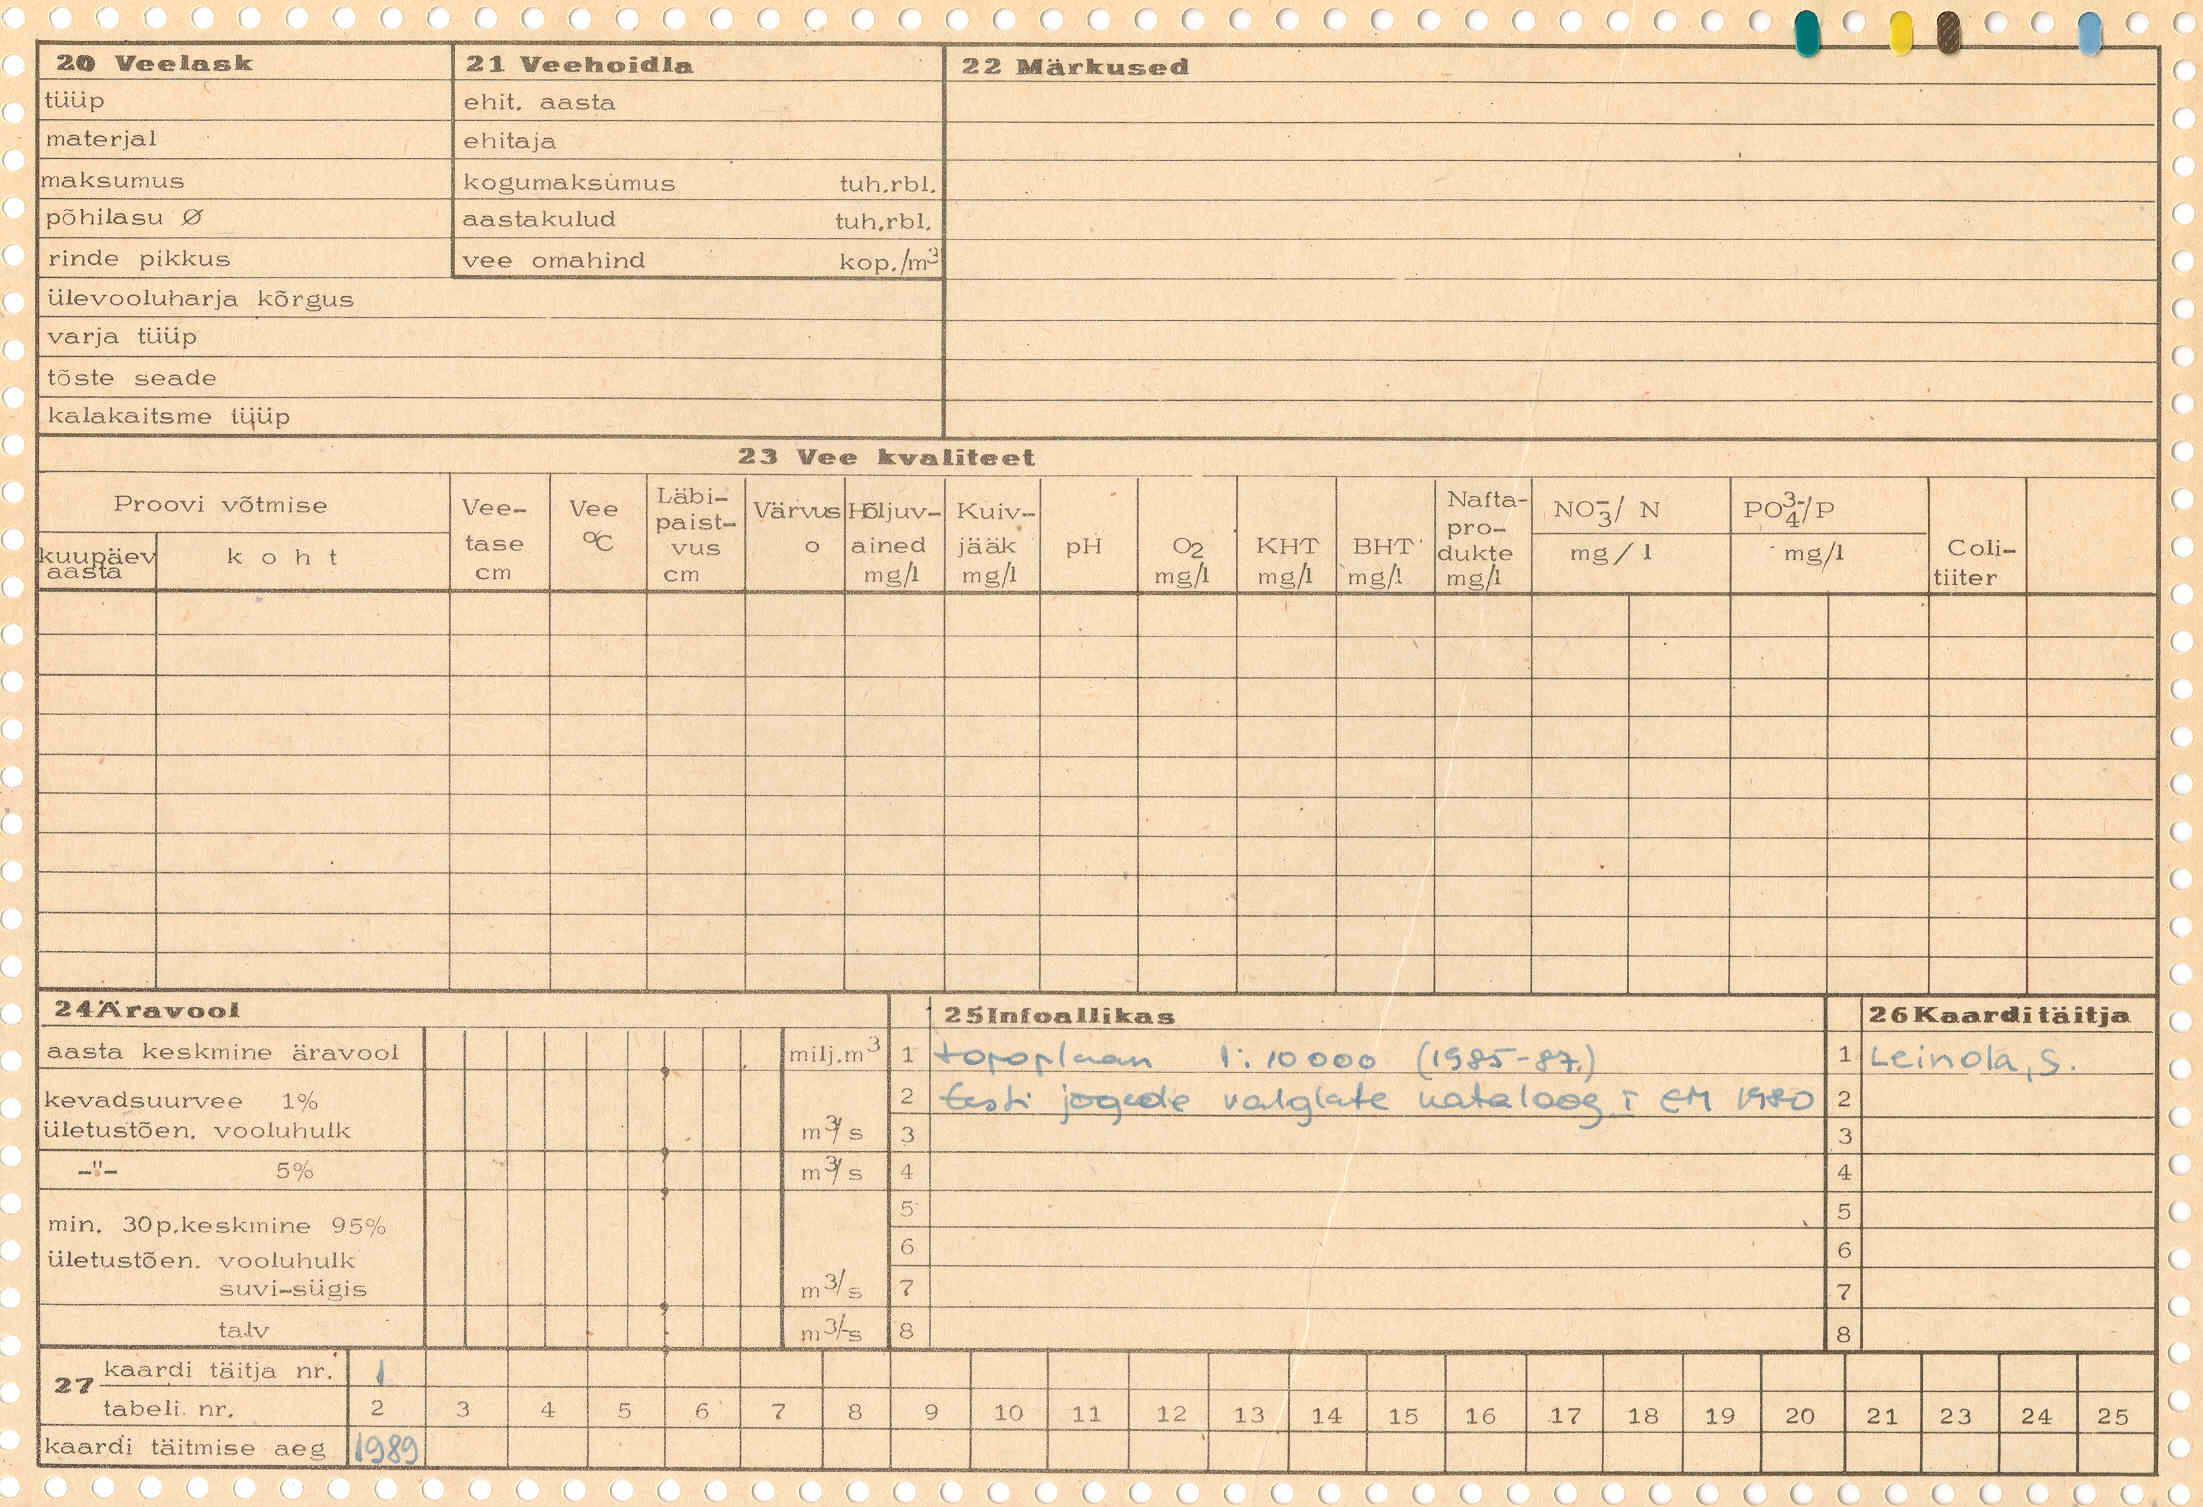 20 Veelask
21 Veehoidla
22 Märkused
tüüp
ehit. aasta
materjal
ehitaja
maksumus
kogumaksumus tuh.rbl.
põhilasu Ø
aastakulud tuh.rbl.
rinde pikkus
vee omahind kop./m3
ülevooluharja kõrgus
varja tüüp
tõste seade
kalakaitsme tüüp
23 Vee kvaliteet
Proovi võtmise
kuupäev aasta
koht
Vee-
tase
cm
Vee
°C
Läbi-
paist-
vus
cm
Värvus
o
Hõljuv-
ained
mg/l
Kuiv-
jääk
mg/l
pH
O2
mg/l
KHT
mg/l
BHT
mg/l
Nafta-
pro-
dukte
mg/l
NO3-/ N
mg/l
PO43-/P
mg/l
Coli-
tiiter
24 Äravool
25 Infoallikas
26 Kaarditäitja
aasta keskmine äravool milj.m3
1 topoplaan 1:10000 (1985-87.)
1 Leinola, S.
kevadsuurvee 1%
2 Eesti jõgede valglate kataloog I EM 1980
2
ületustõen. vooluhulk m3/s
3
3
-"- 5% m3/s
4
4
5
5
min. 30p.keskmine 95%
6
6
ületustõen. vooluhulk
suvi-sügis m3/s
7
7
talv m3/s
8
8
27 kaardi täitja nr. 1
tabeli nr. 2 3 4 5 6 7 8 9 10 11 12 13 14 15 16 17 18 19 20 21 23 24 25
kaardi täitmise aeg 1989